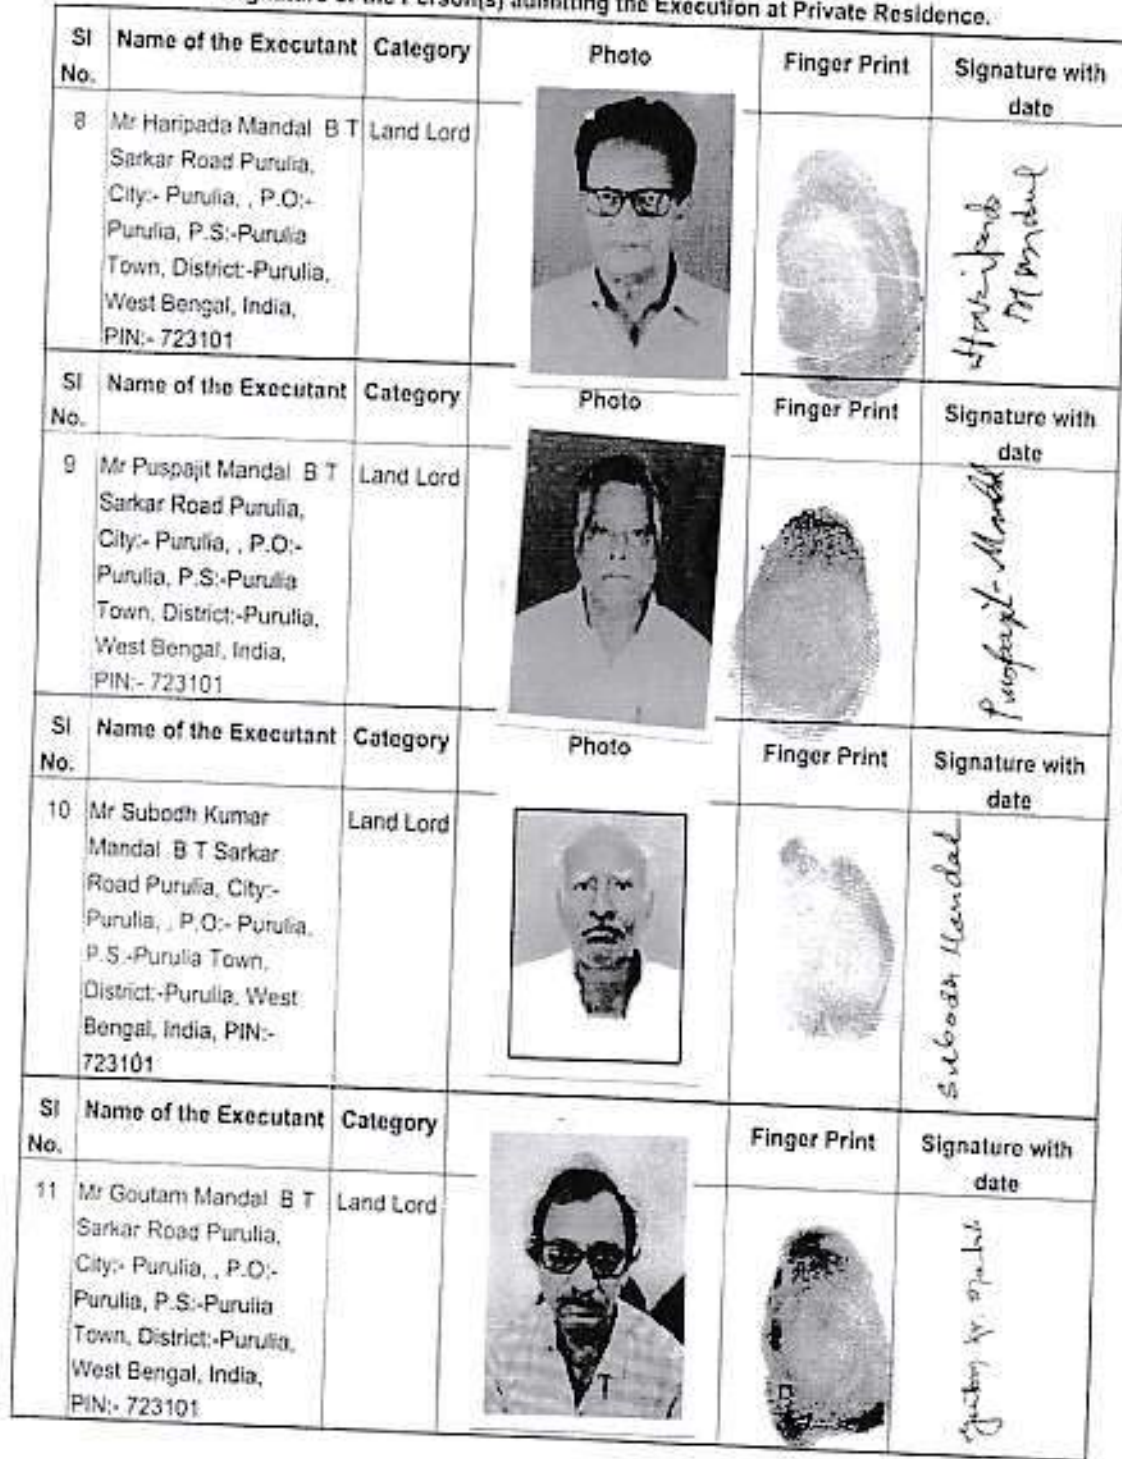 Signature of the Person(s) admitting the Execution at Private Residence.
Sl No. Name of the Executant Category Photo Finger Print Signature with date
8 Mr Haripada Mandal B T Land Lord
Sarkar Road Purulia,
City:- Purulia, , P.O:-
Purulia, P.S:-Purulia
Town, District:-Purulia,
West Bengal, India,
PIN:- 723101
Haripada
Mandal
Sl No. Name of the Executant Category Photo Finger Print Signature with date
9 Mr Puspajit Mandal B T Land Lord
Sarkar Road Purulia,
City:- Purulia, , P.O:-
Purulia, P.S:-Purulia
Town, District:-Purulia,
West Bengal, India,
PIN:- 723101
Puspajit Mandal
Sl No. Name of the Executant Category Photo Finger Print Signature with date
10 Mr Subodh Kumar Land Lord
Mandal B T Sarkar
Road Purulia, City:-
Purulia, , P.O:- Purulia,
P.S:-Purulia Town,
District:-Purulia, West
Bengal, India, PIN:-
723101
Subodh Mandal
Sl No. Name of the Executant Category Finger Print Signature with date
11 Mr Goutam Mandal B T Land Lord
Sarkar Road Purulia,
City:- Purulia, , P.O:-
Purulia, P.S:-Purulia
Town, District:-Purulia,
West Bengal, India,
PIN:- 723101